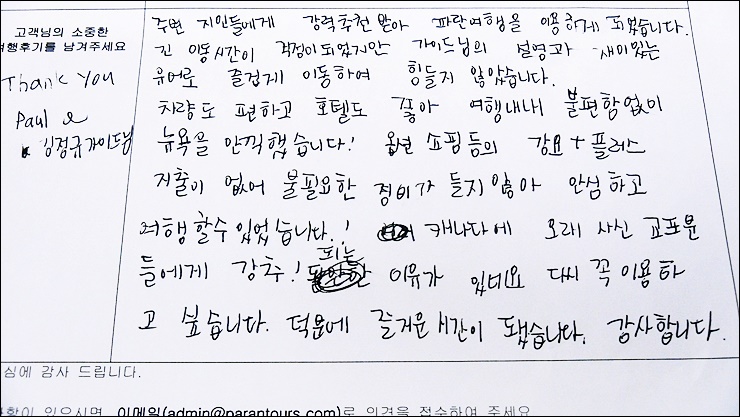 고객님의 소중한
여행후기를 남겨주세요
Thank You
Paul &
김정규가이드님
주변 지인들에게 강력추천 받아 파란여행을 이용하게 되었습니다.
긴 이동시간이 걱정이 되었지만 가이드님의 설명과 재미있는
유머로 즐겁게 이동하여 힘들지 않았습니다.
차량도 편하고 호텔도 좋아 여행내내 불편함없이
뉴욕을 만끽했습니다! 옵션 쇼핑등의 강요+플러스
지출이 없어 불필요한 경비가 들지않아 안심하고
여행할수있었습니다.! 캐나다에 오래 사신 교포분
들에게 강추! 피는 이유가 있네요 다시 꼭 이용하
고 싶습니다. 덕분에 즐거운시간이 됐습니다. 감사합니다.
심에 감사 드립니다.
상황이 있으시면, 이메일(admin@parantours.com)로 의견을 접수하여 주세요